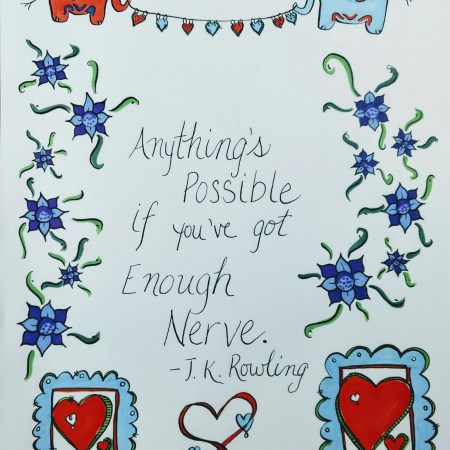 Anything's
Possible
if you've got
Enough
Nerve.
-J.K. Rowling